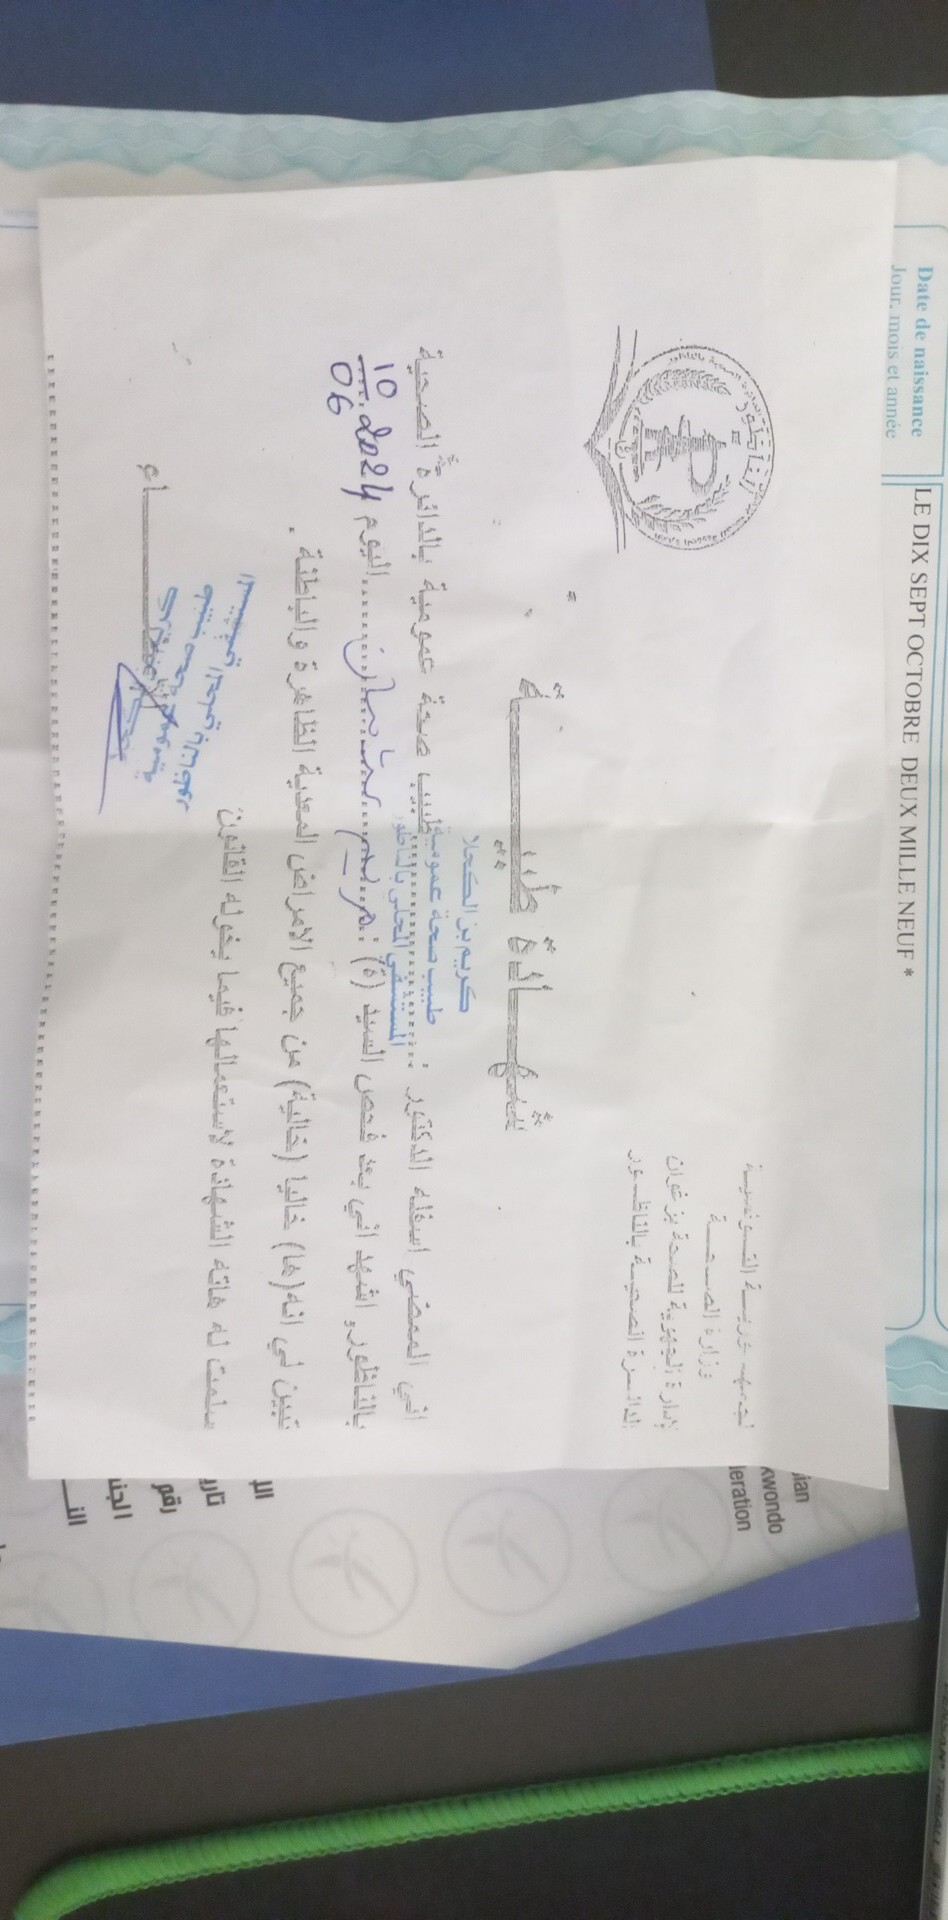 Date de naissance
Jour, mois et année
LE DIX SEPT OCTOBRE DEUX MILLE NEUF *
الجمهورية التونسية
وزارة الصحة
الإدارة الجهوية للصحة بزغوان
الدائرة الصحية بالناظور
شهادة طبية
كريم بن الكحلا
طبيب صحة عمومية
المستشفى المحلي بالناظور
اني الممضي اسفله الدكتور : طبيب صحة عمومية بالدائرة الصحية
بالناظور, اشهد اني بعد فحص السيد (ة) : اليوم 10 06 2024
تبين لي انه(ها) خاليا (خالية) من جميع الامراض المعدية الظاهرة والباطنة .
سلمت له هاته الشهادة لاستعمالها فيما يخوله القانون
الإمضاء
sian
kwondo
deration
تار
رقم
الجن